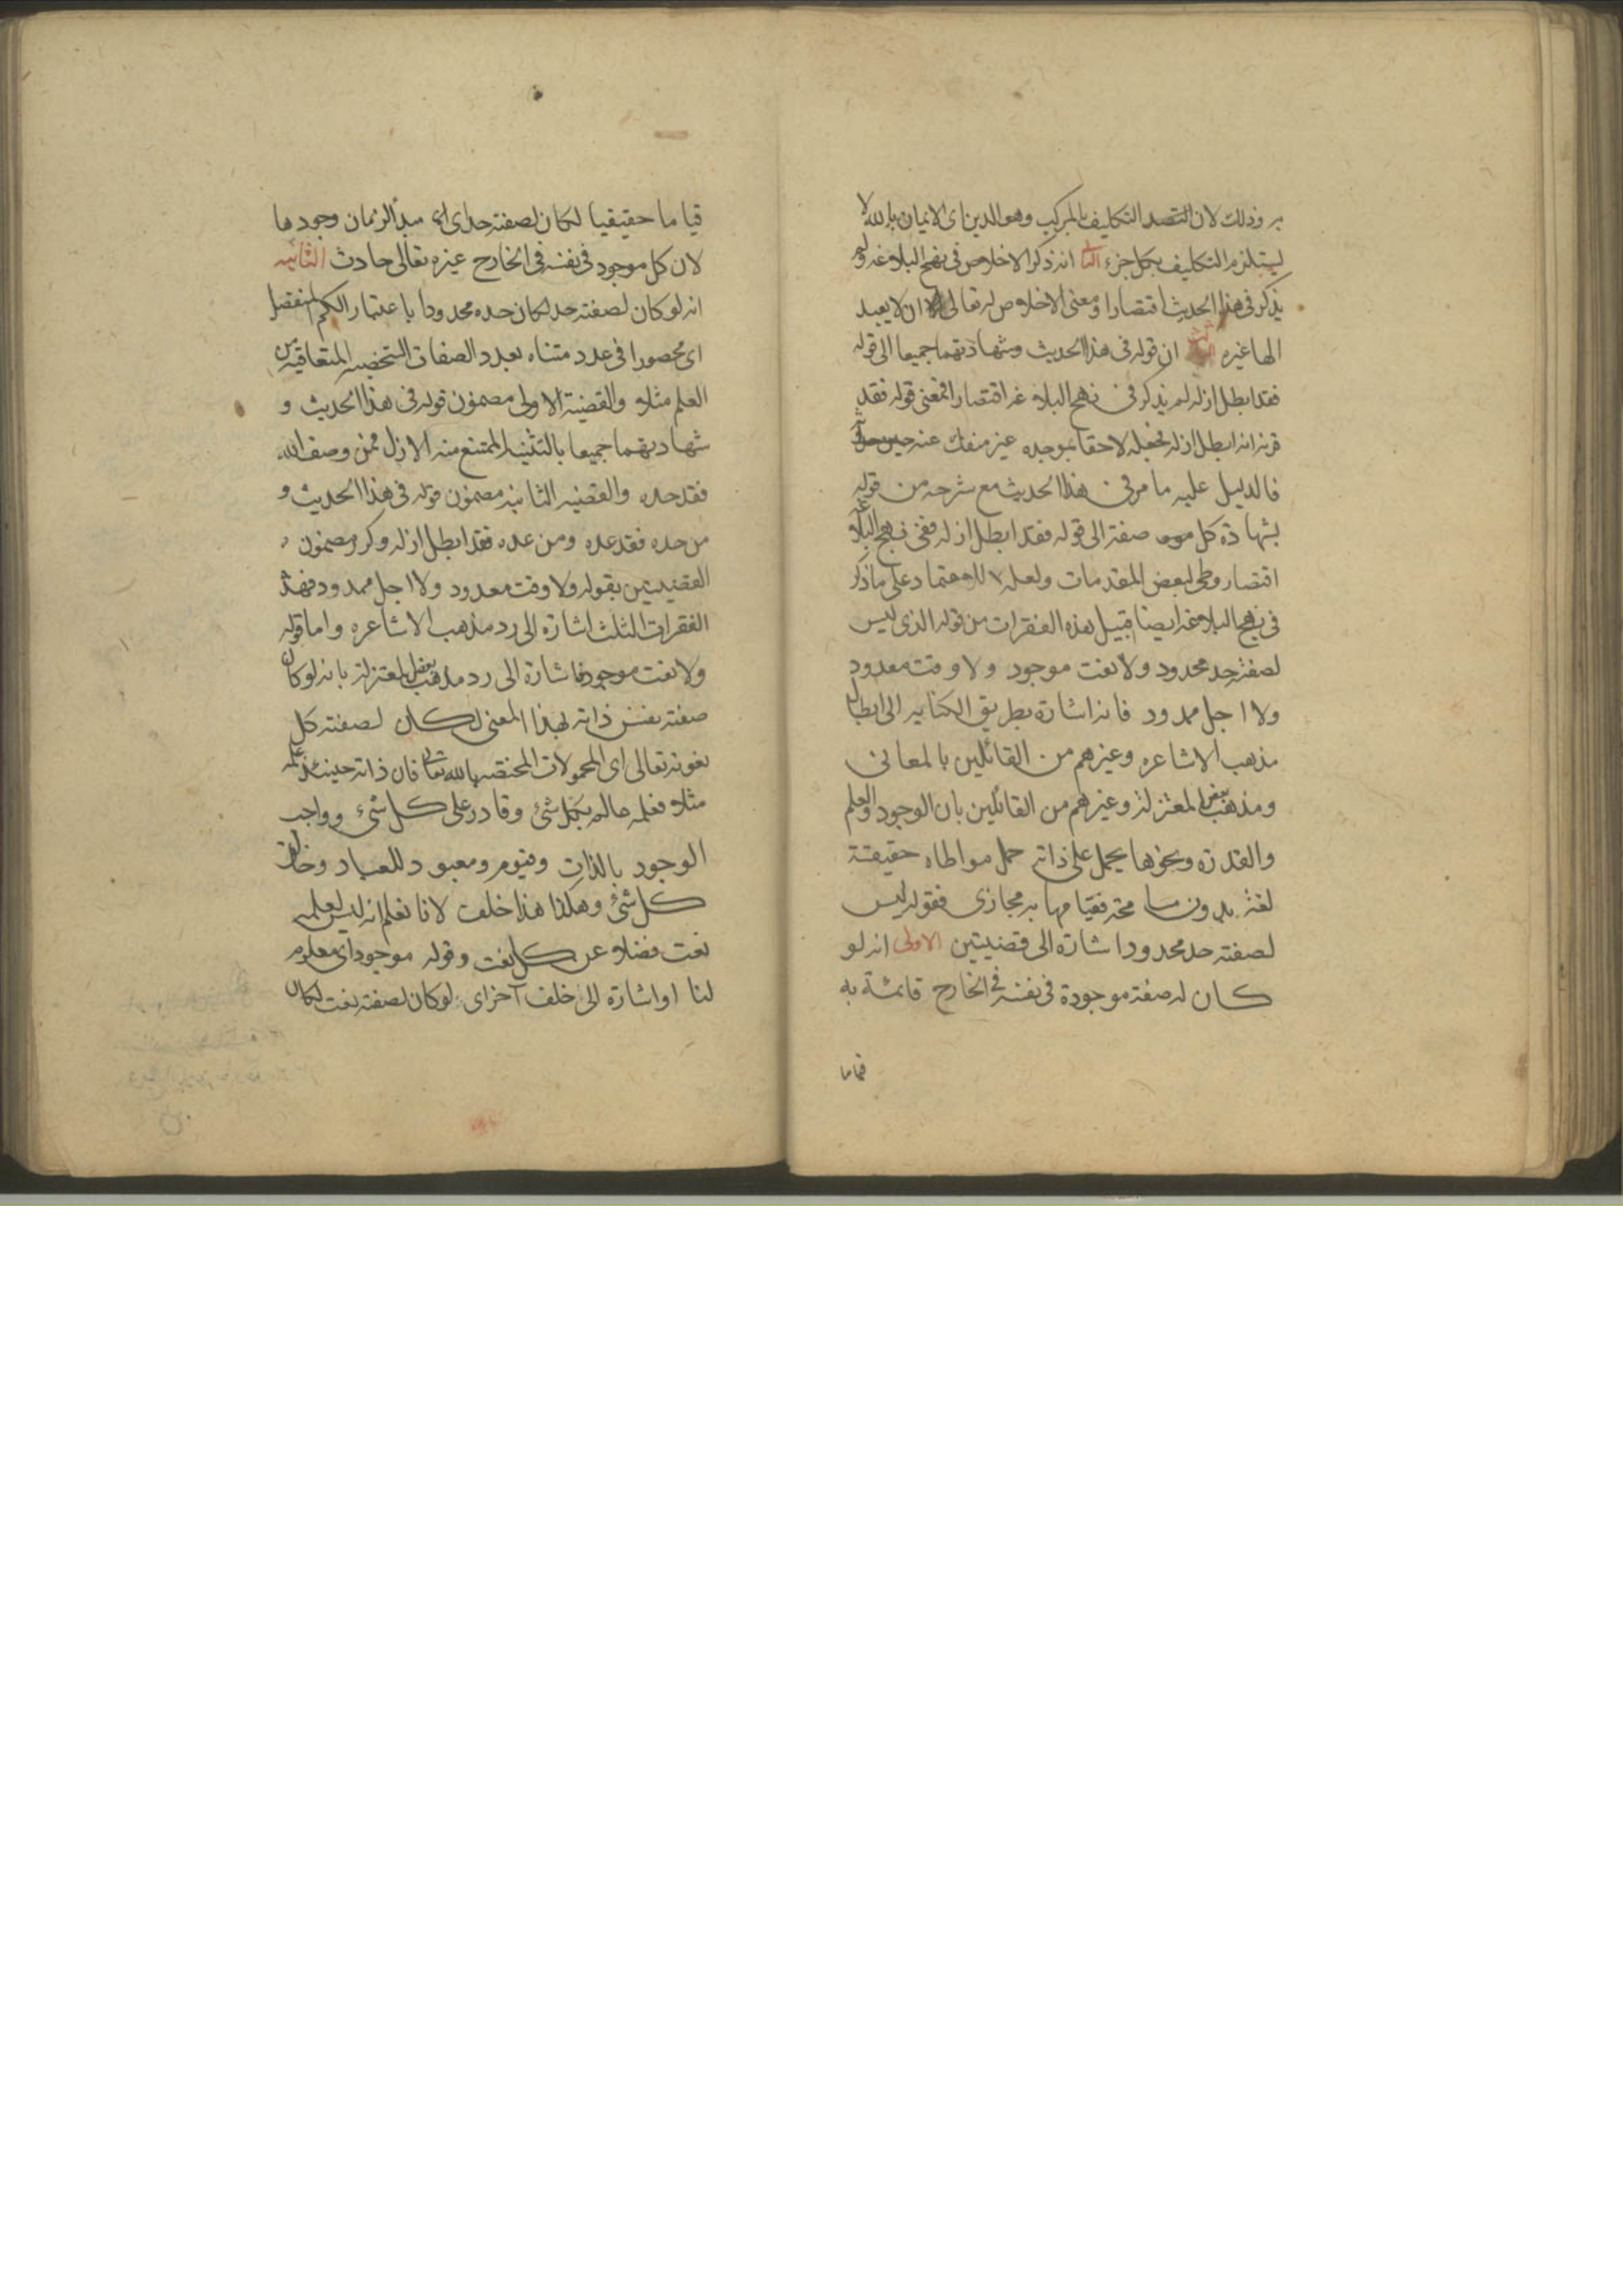 به وذلك لان القصد التكليف بالمركب وهو الدين اى الايمان بالله لا
يستلزم التكليف بكل جزء انه ذكر الاخلاص فى نهج البلاغه ولم
يذكر فى هذا الحديث اقتصارا ومعنى الاخلاص له تعالى ان لا يعبد
الها غيره ان قوله فى هذا الحديث وشهادتهما جميعا الى قوله
فقد ابطل ازله لم يذكر فى نهج البلاغه اقتصارا فمعنى قوله فقد
قرنه انه ابطل ازله فجعله لاحقا بموجده غير منفك عنه
فالدليل عليه ما مر فى هذا الحديث مع شرحه من قوله
بشهادة كل صفة الى قوله فقد ابطل ازله ففى نهج البلاغه
اقتصار وطى لبعض المقدمات ولعله للاعتماد على ما ذكر
فى نهج البلاغه ايضا قبيل هذه الفقرات من قوله الذى ليس
لصفته حد محدود ولا نعت موجود ولا وقت معدود
ولا اجل ممدود فانه اشارة بطريق الكنايه الى ابطال
مذهب الاشاعره وغيرهم من القائلين بالمعانى
ومذهب بعض المعتزلة وغيرهم من القائلين بان الوجود والعلم
والقدرة ونحوها يحمل على ذاته حمل مواطاه حقيقة
لغة بدون فقيامها به مجازى فقوله ليس
لصفته حد محدود اشارة الى قضيتين الاولى انه لو
كان له صفة موجودة فى نفسه فى الخارج قائمة به
قياما
قياما حقيقيا لكان لصفته حد اى مبدأ لزمان وجودها
لان كل موجود فى نفسه فى الخارج غيره تعالى حادث الثانيه
انه لو كان لصفته حد لكان حده محدودا باعتبار الكم المنفصل
اى محصورا فى عدد متناه بعدد الصفات الشخصيه المتعاقبه من
العلم مثلا والقضية الاولى مضمون قوله فى هذا الحديث و
شهادتهما جميعا بالتثنيه الممتنع منه الازل فمن وصف الله
فقد حده والقضيه الثانيه مضمون قوله فى هذا الحديث و
من حده فقد عده ومن عده فقد ابطل ازله وكرر مضمون
القضيتين بقوله ولا وقت معدود ولا اجل ممدود فهذه
الفقرات الثلث اشارة الى رد مذهب الاشاعره واما قوله
ولا نعت موجود فاشارة الى رد مذهب بعض المعتزلة بانه لو كان
صفته نفس ذاته بهذا المعنى لكان لصفته كل
نعوته تعالى اى المحمولات المختصه بالله تعالى فان ذاته حينئذ علمه
مثلا فعلمه عالم بكل شئ وقادر على كل شئ وواجب
الوجود بالذات وقيوم ومعبود للعباد وخالق
كل شئ وهكذا هذا خلف لانا نعلم انه ليس لعلمه
نعت فضلا عن كل نعت وقوله موجود اى معلوم
لنا او اشارة الى خلف آخر اى لو كان لصفته نعت لكان